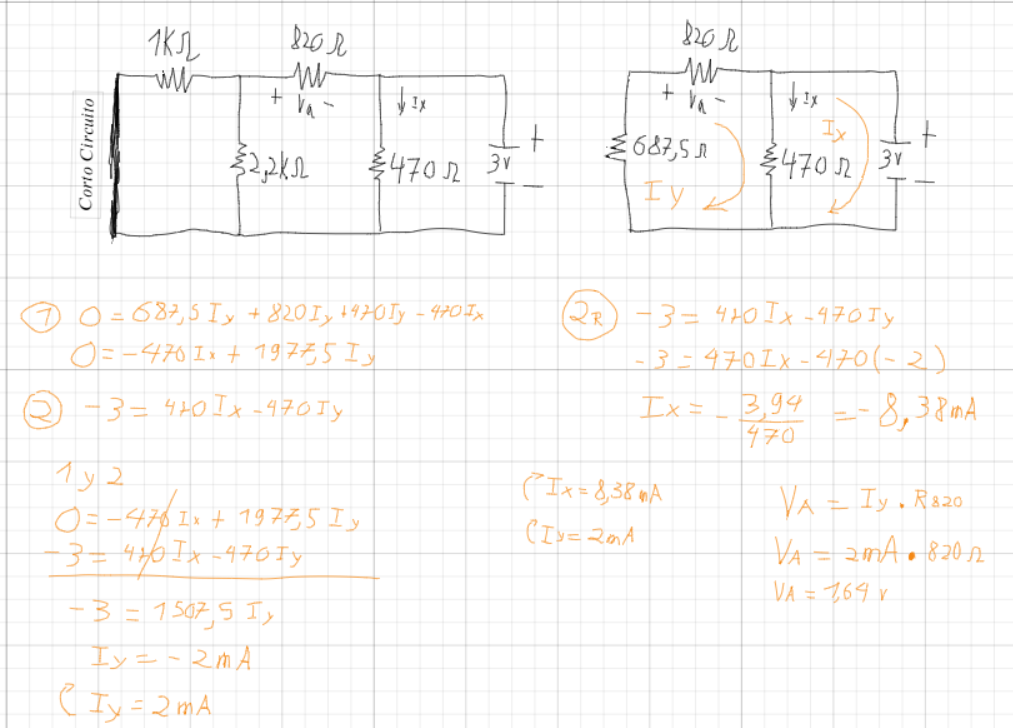 1KΩ 820Ω
+ Va -
↓ Ix
Corto Circuito
2,2KΩ
470Ω
3v
+
-
820Ω
+ Va -
↓ Ix
687,5Ω
Iy
470Ω
Ix
3v
+
-
① 0 = 687,5 Iy + 820 Iy + 470 Iy - 470 Ix
0 = -470 Ix + 1977,5 Iy
② -3 = 470 Ix - 470 Iy
1 y 2
0 = -470 Ix + 1977,5 Iy
-3 = 470 Ix - 470 Iy
-3 = 1507,5 Iy
Iy = -2mA
Iy = 2mA
2R -3 = 470 Ix - 470 Iy
-3 = 470 Ix - 470 (-2)
Ix = - 3,94 / 470 = -8,38mA
Ix = 8,38mA
Iy = 2mA
VA = Iy . R820
VA = 2mA • 820Ω
VA = 1,64 v